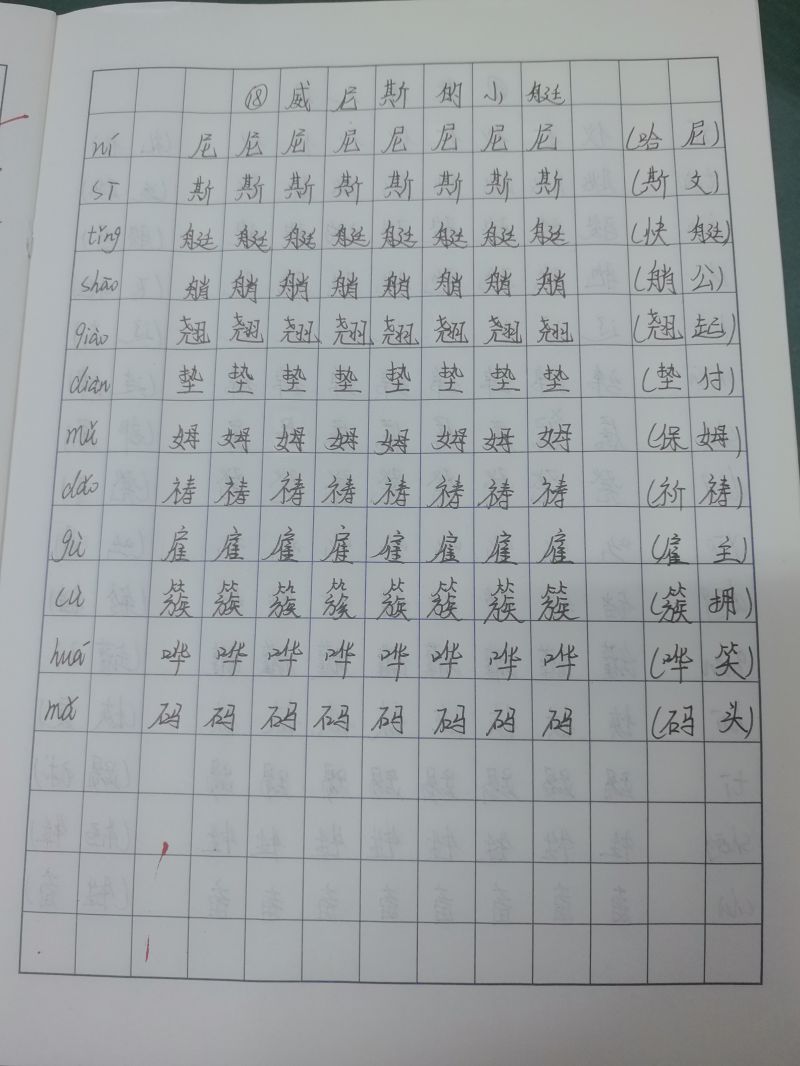 ⑱ 威尼斯的小艇
ní 尼 尼 尼 尼 尼 尼 尼 尼 (哈尼)
sī 斯 斯 斯 斯 斯 斯 斯 斯 (斯文)
tǐng 艇 艇 艇 艇 艇 艇 艇 艇 (快艇)
shāo 艄 艄 艄 艄 艄 艄 艄 艄 (艄公)
qiào 翘 翘 翘 翘 翘 翘 翘 翘 (翘起)
diàn 垫 垫 垫 垫 垫 垫 垫 垫 (垫付)
mǔ 姆 姆 姆 姆 姆 姆 姆 姆 (保姆)
dǎo 祷 祷 祷 祷 祷 祷 祷 祷 (祈祷)
gù 雇 雇 雇 雇 雇 雇 雇 雇 (雇主)
cù 簇 簇 簇 簇 簇 簇 簇 簇 (簇拥)
huá 哗 哗 哗 哗 哗 哗 哗 哗 (哗笑)
mǎ 码 码 码 码 码 码 码 码 (码头)